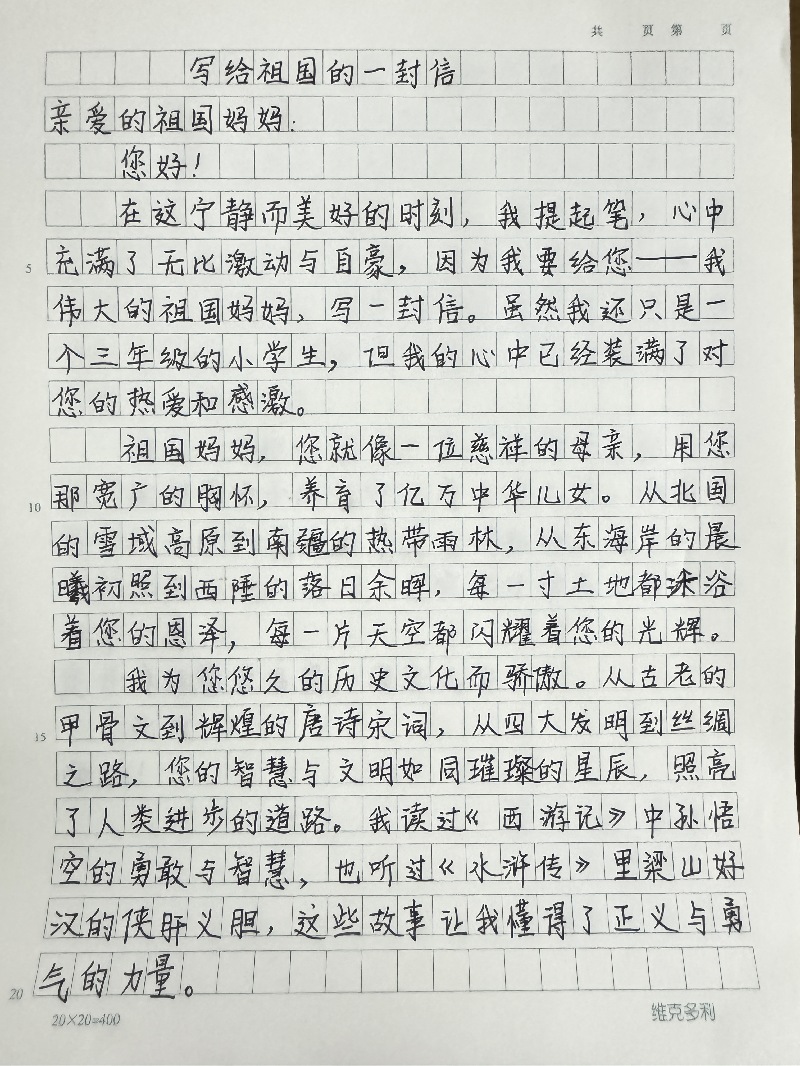 共 页 第 页
写给祖国的一封信
亲爱的祖国妈妈:
您好!
在这宁静而美好的时刻,我提起笔,心中
5 充满了无比激动与自豪,因为我要给您——我
伟大的祖国妈妈,写一封信。虽然我还只是一
个三年级的小学生,但我的心中已经装满了对
您的热爱和感激。
祖国妈妈,您就像一位慈祥的母亲,用您
10 那宽广的胸怀,养育了亿万中华儿女。从北国
的雪域高原到南疆的热带雨林,从东海岸的晨
曦初照到西陲的落日余晖,每一寸土地都沐浴
着您的恩泽,每一片天空都闪耀着您的光辉。
我为您悠久的历史文化而骄傲。从古老的
15 甲骨文到辉煌的唐诗宋词,从四大发明到丝绸
之路,您的智慧与文明如同璀璨的星辰,照亮
了人类进步的道路。我读过《西游记》中孙悟
空的勇敢与智慧,也听过《水浒传》里梁山好
汉的侠肝义胆,这些故事让我懂得了正义与勇
20 气的力量。
20×20=400 维克多利